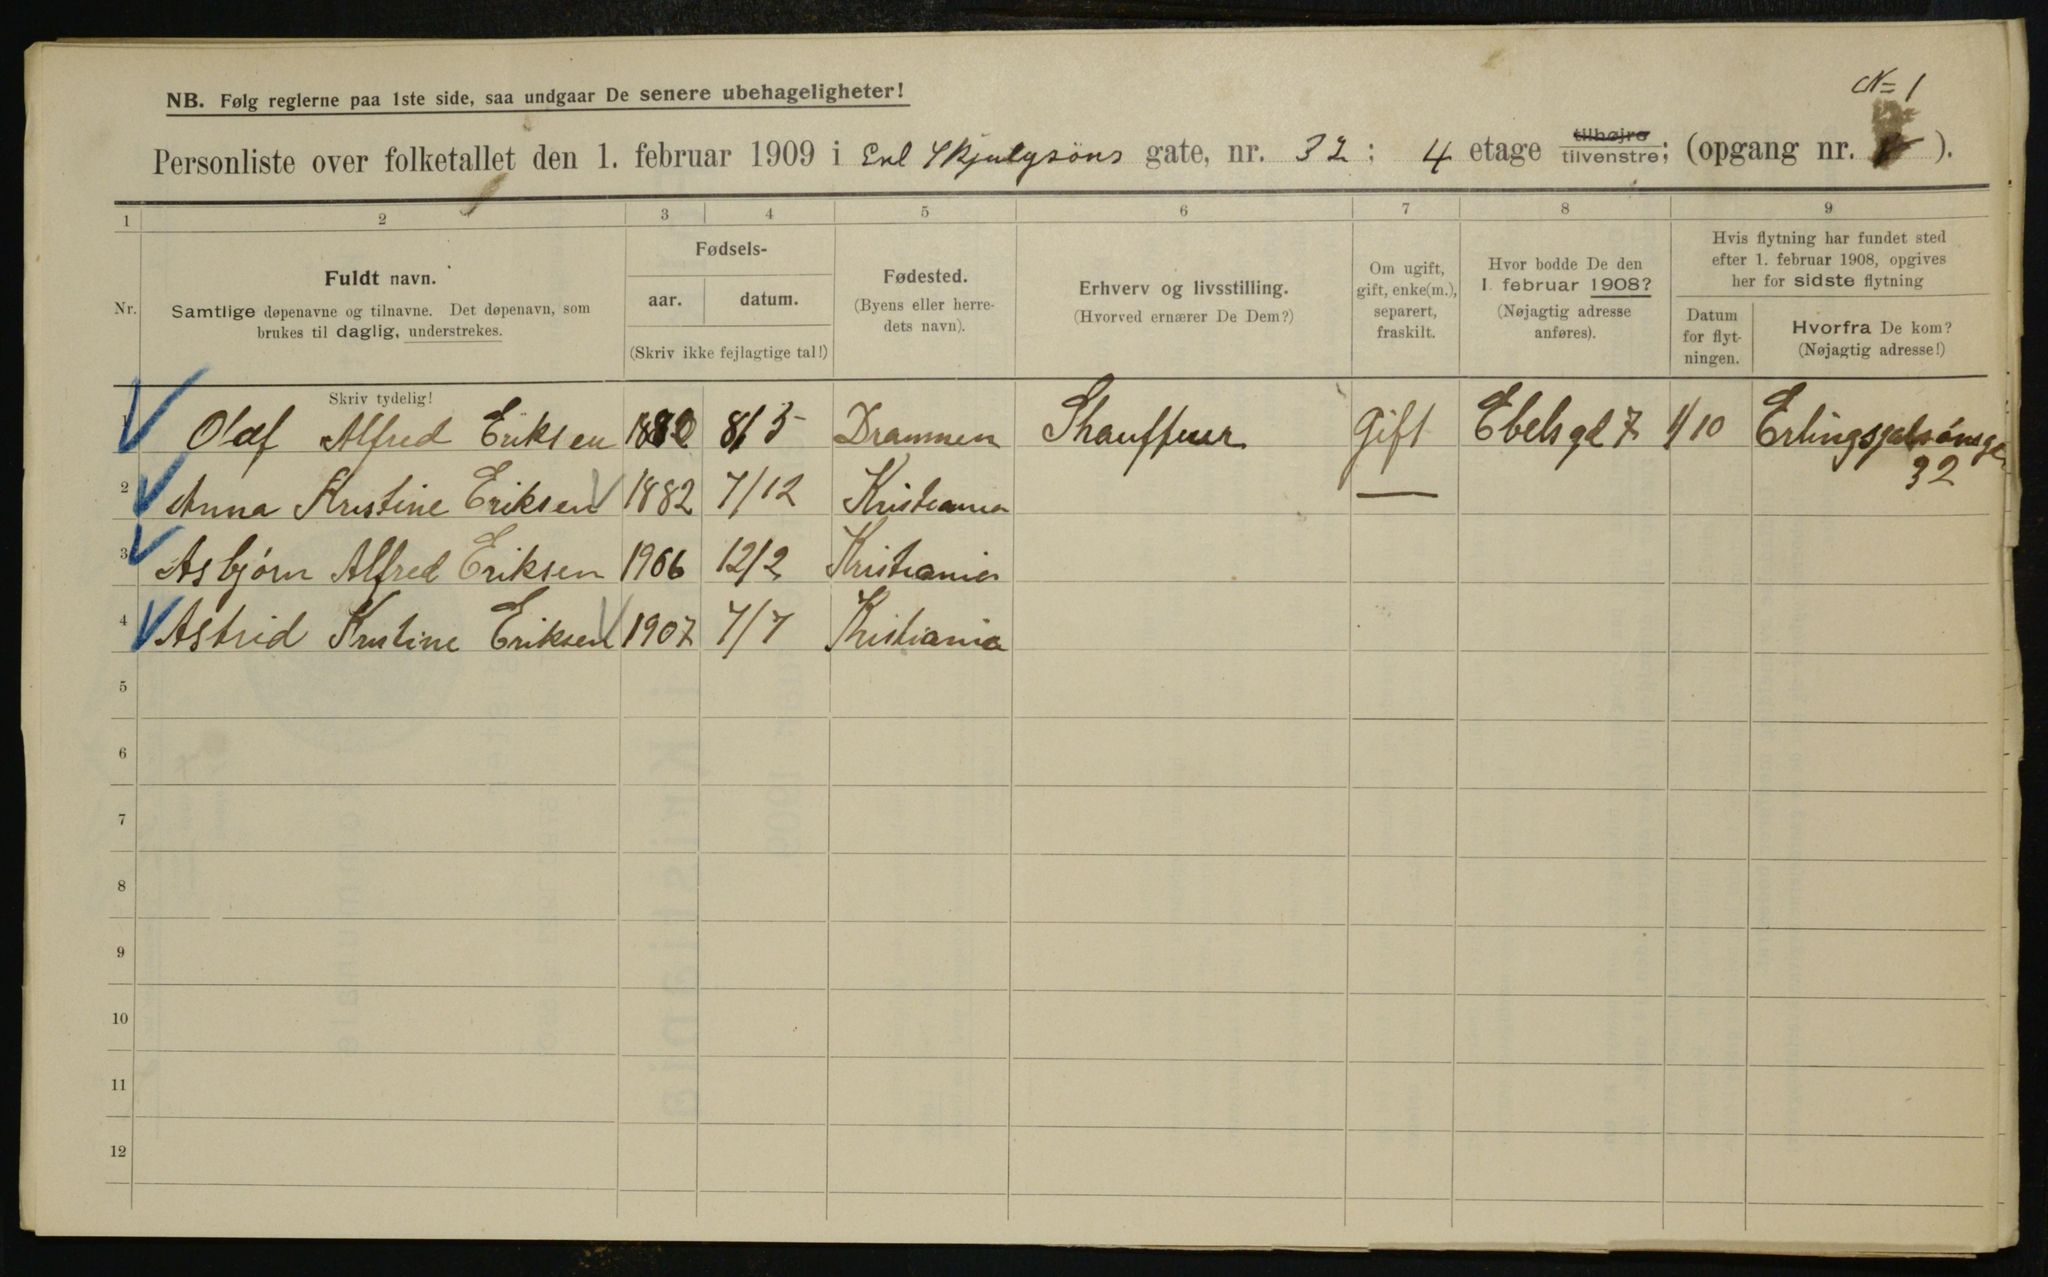 N= 1
NB. Følg reglerne paa 1ste side, saa undgaar De senere ubehageligheter!
Personliste over folketallet den 1. februar 1909 i Erl Skjulgsöns gate, nr. 32 ; 4 etage tilhøjre tilvenstre; (opgang nr. ).
1 2 3 4 5 6 7 8 9
Nr.
Fuldt navn.
Samtlige døpenavne og tilnavne. Det døpenavn, som
brukes til daglig, understrekes.
Fødsels-
aar. datum.
(Skriv ikke fejlagtige tal!)
Fødested.
(Byens eller herre-
dets navn).
Erhverv og livsstilling.
(Hvorved ernærer De Dem?)
Om ugift,
gift, enke(m.),
separert,
fraskilt.
Hvor bodde De den
1. februar 1908?
(Nøjagtig adresse
anføres).
Hvis flytning har fundet sted
efter 1. februar 1908, opgives
her for sidste flytning
Datum
for flyt-
ningen.
Hvorfra De kom?
(Nøjagtig adresse!)
Skriv tydelig!
1 Olaf Alfred Eriksen 1880 8/5 Drammen Shauffuer Gift Ebels gd 7 1/10 Erlingsjalsönsgd
32
2 Anna Kristine Eriksen 1882 7/12 Kristiania —
3 Asbjørn Alfred Eriksen 1906 12/2 Kristiania
4 Astrid Kristine Eriksen 1907 7/7 Kristiania
5
6
7
8
9
10
11
12